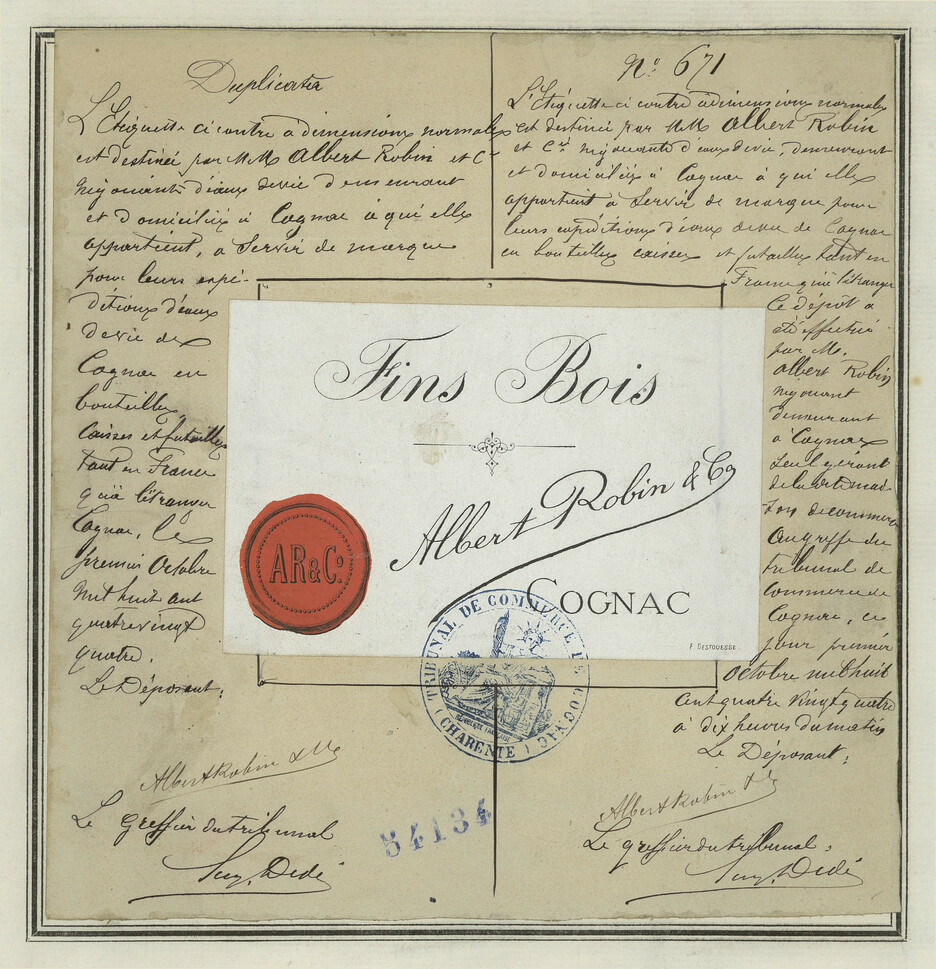 Duplicata
L'Etiquette ci contre à dimensions normales
est destinée par MM Albert Robin et Cie
négociants d'eaux de vie demeurant
et domiciliés à Cognac à qui elle
appartient, à Servir de marque
pour leurs expé-
ditions d'eaux
de vie de
Cognac en
bouteilles,
caisses et futailles
tant en France
qu'à l'étranger
Cognac, le
premier Octobre
mil huit cent
quatre vingt
quatre.
Le Déposant:
Albert Robin & Cie
Le greffier du tribunal
No 671
L'Etiquette ci contre à dimensions normales
est destinée par MM Albert Robin
et Cie négociants d'eaux de vie, demeurant
et domiciliés à Cognac à qui elle
appartient à Servir de marque pour
leurs expéditions d'eaux de vie de Cognac
en bouteilles caisses et futailles tant en
France qu'à l'étranger
Ce dépôt a
été effectué
par M.
Albert Robin
négociant
demeurant
à Cognac
seul gérant
de la dite mai-
son de commerce
au greffe du
tribunal de
commerce de
Cognac, ce
jour premier
Octobre mil huit
cent quatre vingt quatre
à dix heures du matin
Le Déposant:
Albert Robin & Cie
Le greffier du tribunal:
Fins Bois
Albert Robin & Co
COGNAC
AR&Co
F. DESTOUESSE.
TRIBUNAL DE COMMERCE DE COGNAC
(CHARENTE)
54134